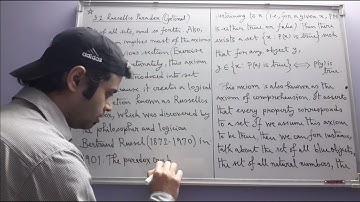 3.2 Russell's Paradox (Optional)
of all sets, and so forth. Also,
implies most of the axioms
ious section (Exercise
unately, this axiom
duced into set
because it creates a logical
tion known as Russells
ox, which was discovered by
philosopher and logician
Bertrand Russel (1872-1970) in
901. The paradox
pertaining to x (i.e., for a given x, P(x)
is either true or false). Then there
exists a set {x : P(x) is true} such
that for any object y,
y ∈ {x : P(x) is true} ⟺ P(y) is
true.
This axiom is also known as the
axiom of comprehension. It asserts
that every property corresponds
to a set. If we assume this axiom
to be true, then we can for instance,
talk about the set of all blue objects,
the set of all natural numbers, the
adidas